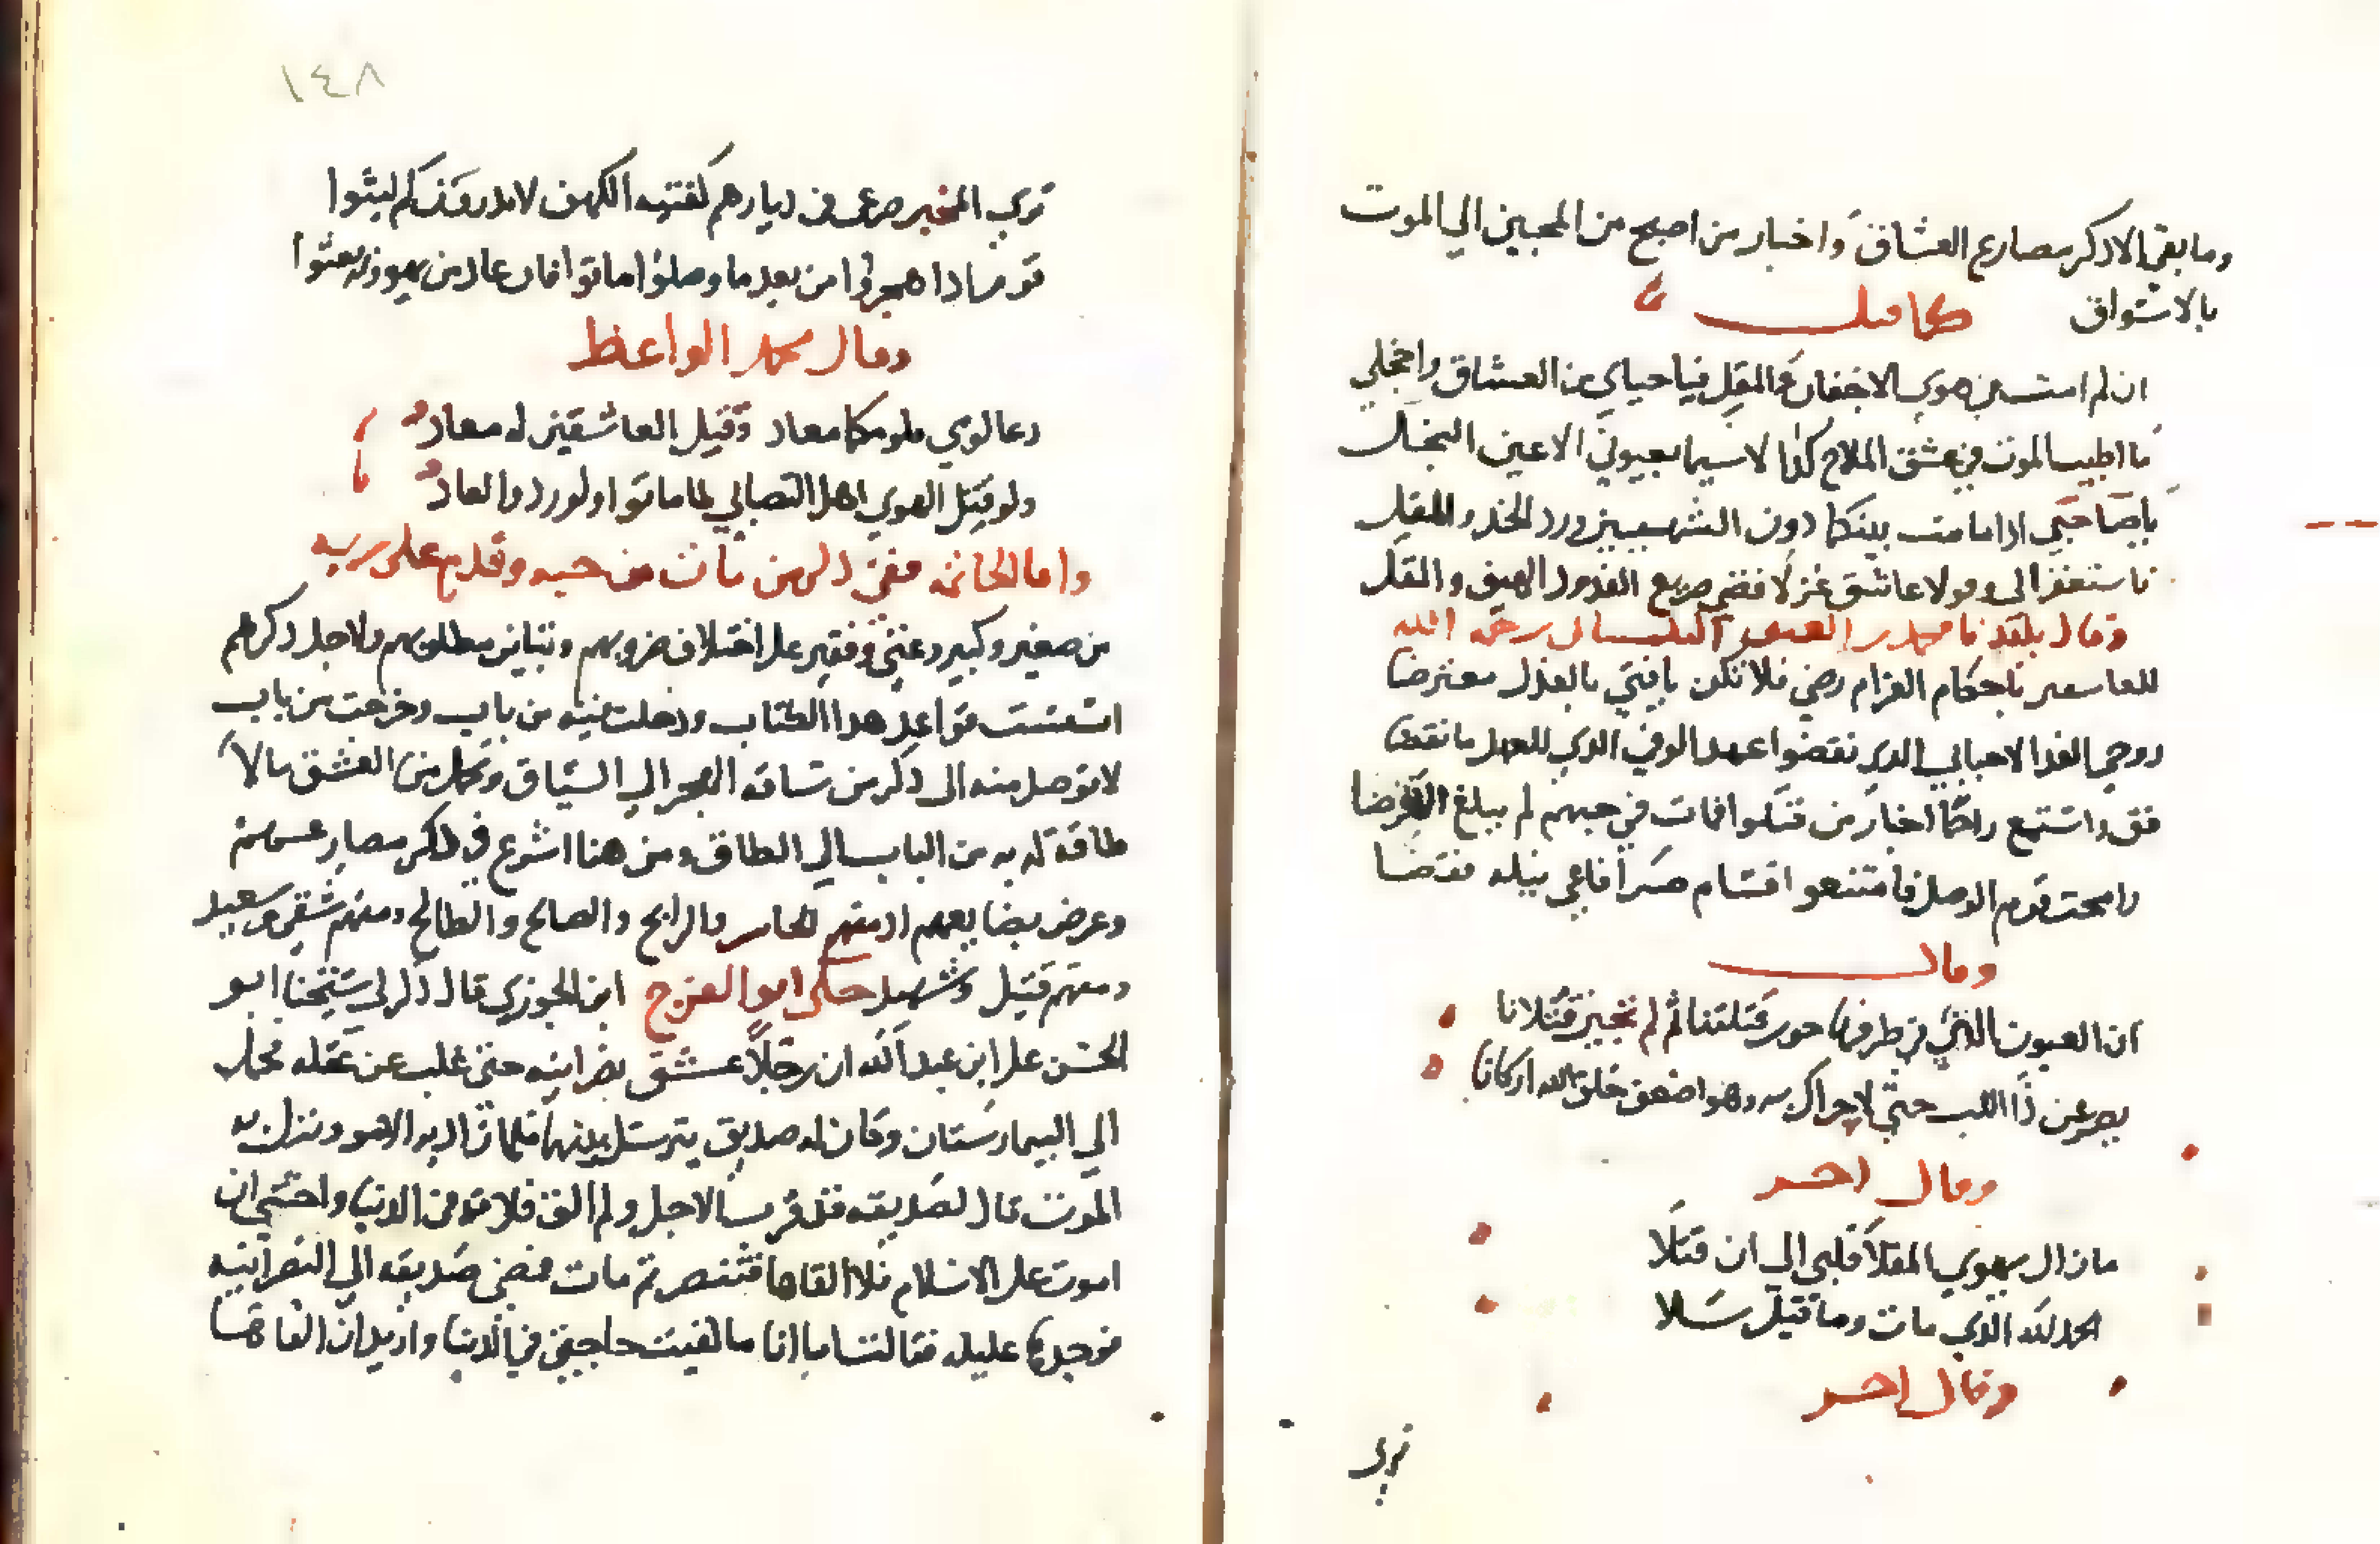 وما بقي الا ذكر مصارع العشاق واخبار من اصبح من المحبين الي الموت
بالاشواق
كامل
ان لم امت في هوي الاجفان والمقل فيا حياي من العشاق واخجلي
ما اطيب الموت في عشق الملاح كذا لاسيما بعيون الاعين النجل
يا صاحبي اذا ما مت بينكما دون الشهيبين ورد الخد والمقل
فاستغفرا لي وقولا عاشق غزلا قضى صريع القدود الهيف والمقل
وقال محمد بن العفيف التلمساني رحمه الله
للعاشقين باحكام الغرام رضي فلا تكن يا فتي بالعذل معترضا
روحي الفدا لاحبابي الذين نقضوا عهد الوفي الذي للعهد ما نقضا
قف واستمع راحما اخبار من قتلوا فمات في حبهم لم يبلغ الغرضا
رام حب قوم الوصل فامتنعوا فسام صبرا فاعي نيله فقضا
وقال
ان العيون التي في طرفها حور قتلتنا ثم لم تحيين قتلانا
يصرعن ذا اللب حتي لا حراك به وهو اضعف خلق الله اركانا
وقال اخر
ما زال يهوي المقلا قلبي الي ان قتلا
الحمد لله الذي مات وما قيل سلا
وقال اخر
تري
١٤٨
تري المحبين صرعي في ديارهم كفتية الكهف لا يدرون كم لبثوا
قوم اذا هجروا من بعد ما وصلوا ماتوا فان عاد من يهوونه بعثوا
وقال محمد الواعظ
دعا لوي ملومكما معاد وقتيل العاشقين له معاد
ولو قتل الهوي اهل التصابي لما ماتوا ولو ردوا لعادوا
واما الخاتمة ففي ذكر من مات من حبه وقدم على ربه
من صغير وكبير وغني وفقير على اختلاف ضروبهم وتباين مطلوبهم ولاجل ذكرهم
اسست قواعد هذا الكتاب ودخلت فيه من باب وخرجت من باب
لاتوصل منه الى ذكر من ساقه الهجر الي السياق وتحمل من العشق مالا
طاقة له به من الباب الي الطاق ومن هنا اشرع في ذكر مصارعهم
وعرض بضايعهم اذ منهم الخاسر والرابح والصالح والطالح ومنهم شقي وسعيد
ومنهم قتيل وشهيد حكى ابو الفرج ابن الجوزي قال ذكر لي شيخنا ابو
الحسن على ابن عبد الله ان رجلا عشق نصرانيه حتي غلب عن عقله فحمل
الي البيمارستان وكان له صديق يترسل بينهما فلما زاد به الامر ونزل به
الموت قال لصديقه قد قرب الاجل ولم الق فلانة في الدنيا واخشي ان
اموت على الاسلام فلا القاها فتنصر ثم مات فمضى صديقه الي النصرانيه
فوجدها عليله فقالت اما انا ما لقيت صاحبي في الدنيا واريد ان القاه